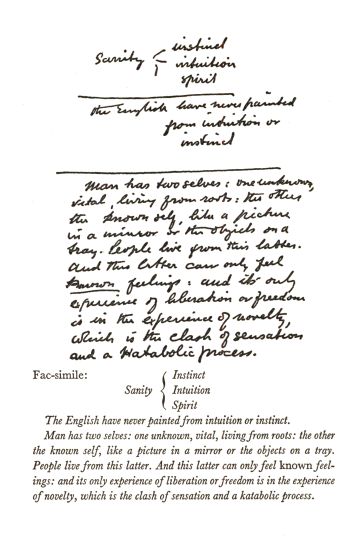 Sanity { instinct
intuition
spirit
the English have never painted
from intuition or
instinct
Man has two selves: one unknown,
vital, living from roots: the other
the known self, like a picture
in a mirror or the objects on a
tray. People live from this latter.
And this latter can only feel
known feelings: and its only
experience of liberation or freedom
is in the experience of novelty,
which is the clash of sensation
and a katabolic process.
Fac-simile:
Instinct
Sanity { Intuition
Spirit
The English have never painted from intuition or instinct.
Man has two selves: one unknown, vital, living from roots: the other
the known self, like a picture in a mirror or the objects on a tray.
People live from this latter. And this latter can only feel known feel-
ings: and its only experience of liberation or freedom is in the experience
of novelty, which is the clash of sensation and a katabolic process.